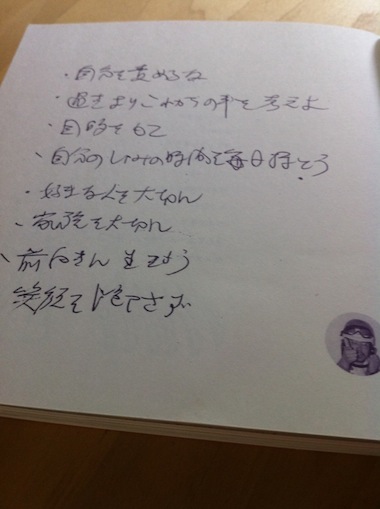 ・自分を責めるな
・過去よりこれからの事を考えよ
・目的をもて
・自分のしゅみの時間を毎日持とう
・好きな人を大切に
・家族を大切に
・前向きに生きよう
笑顔を絶やさず